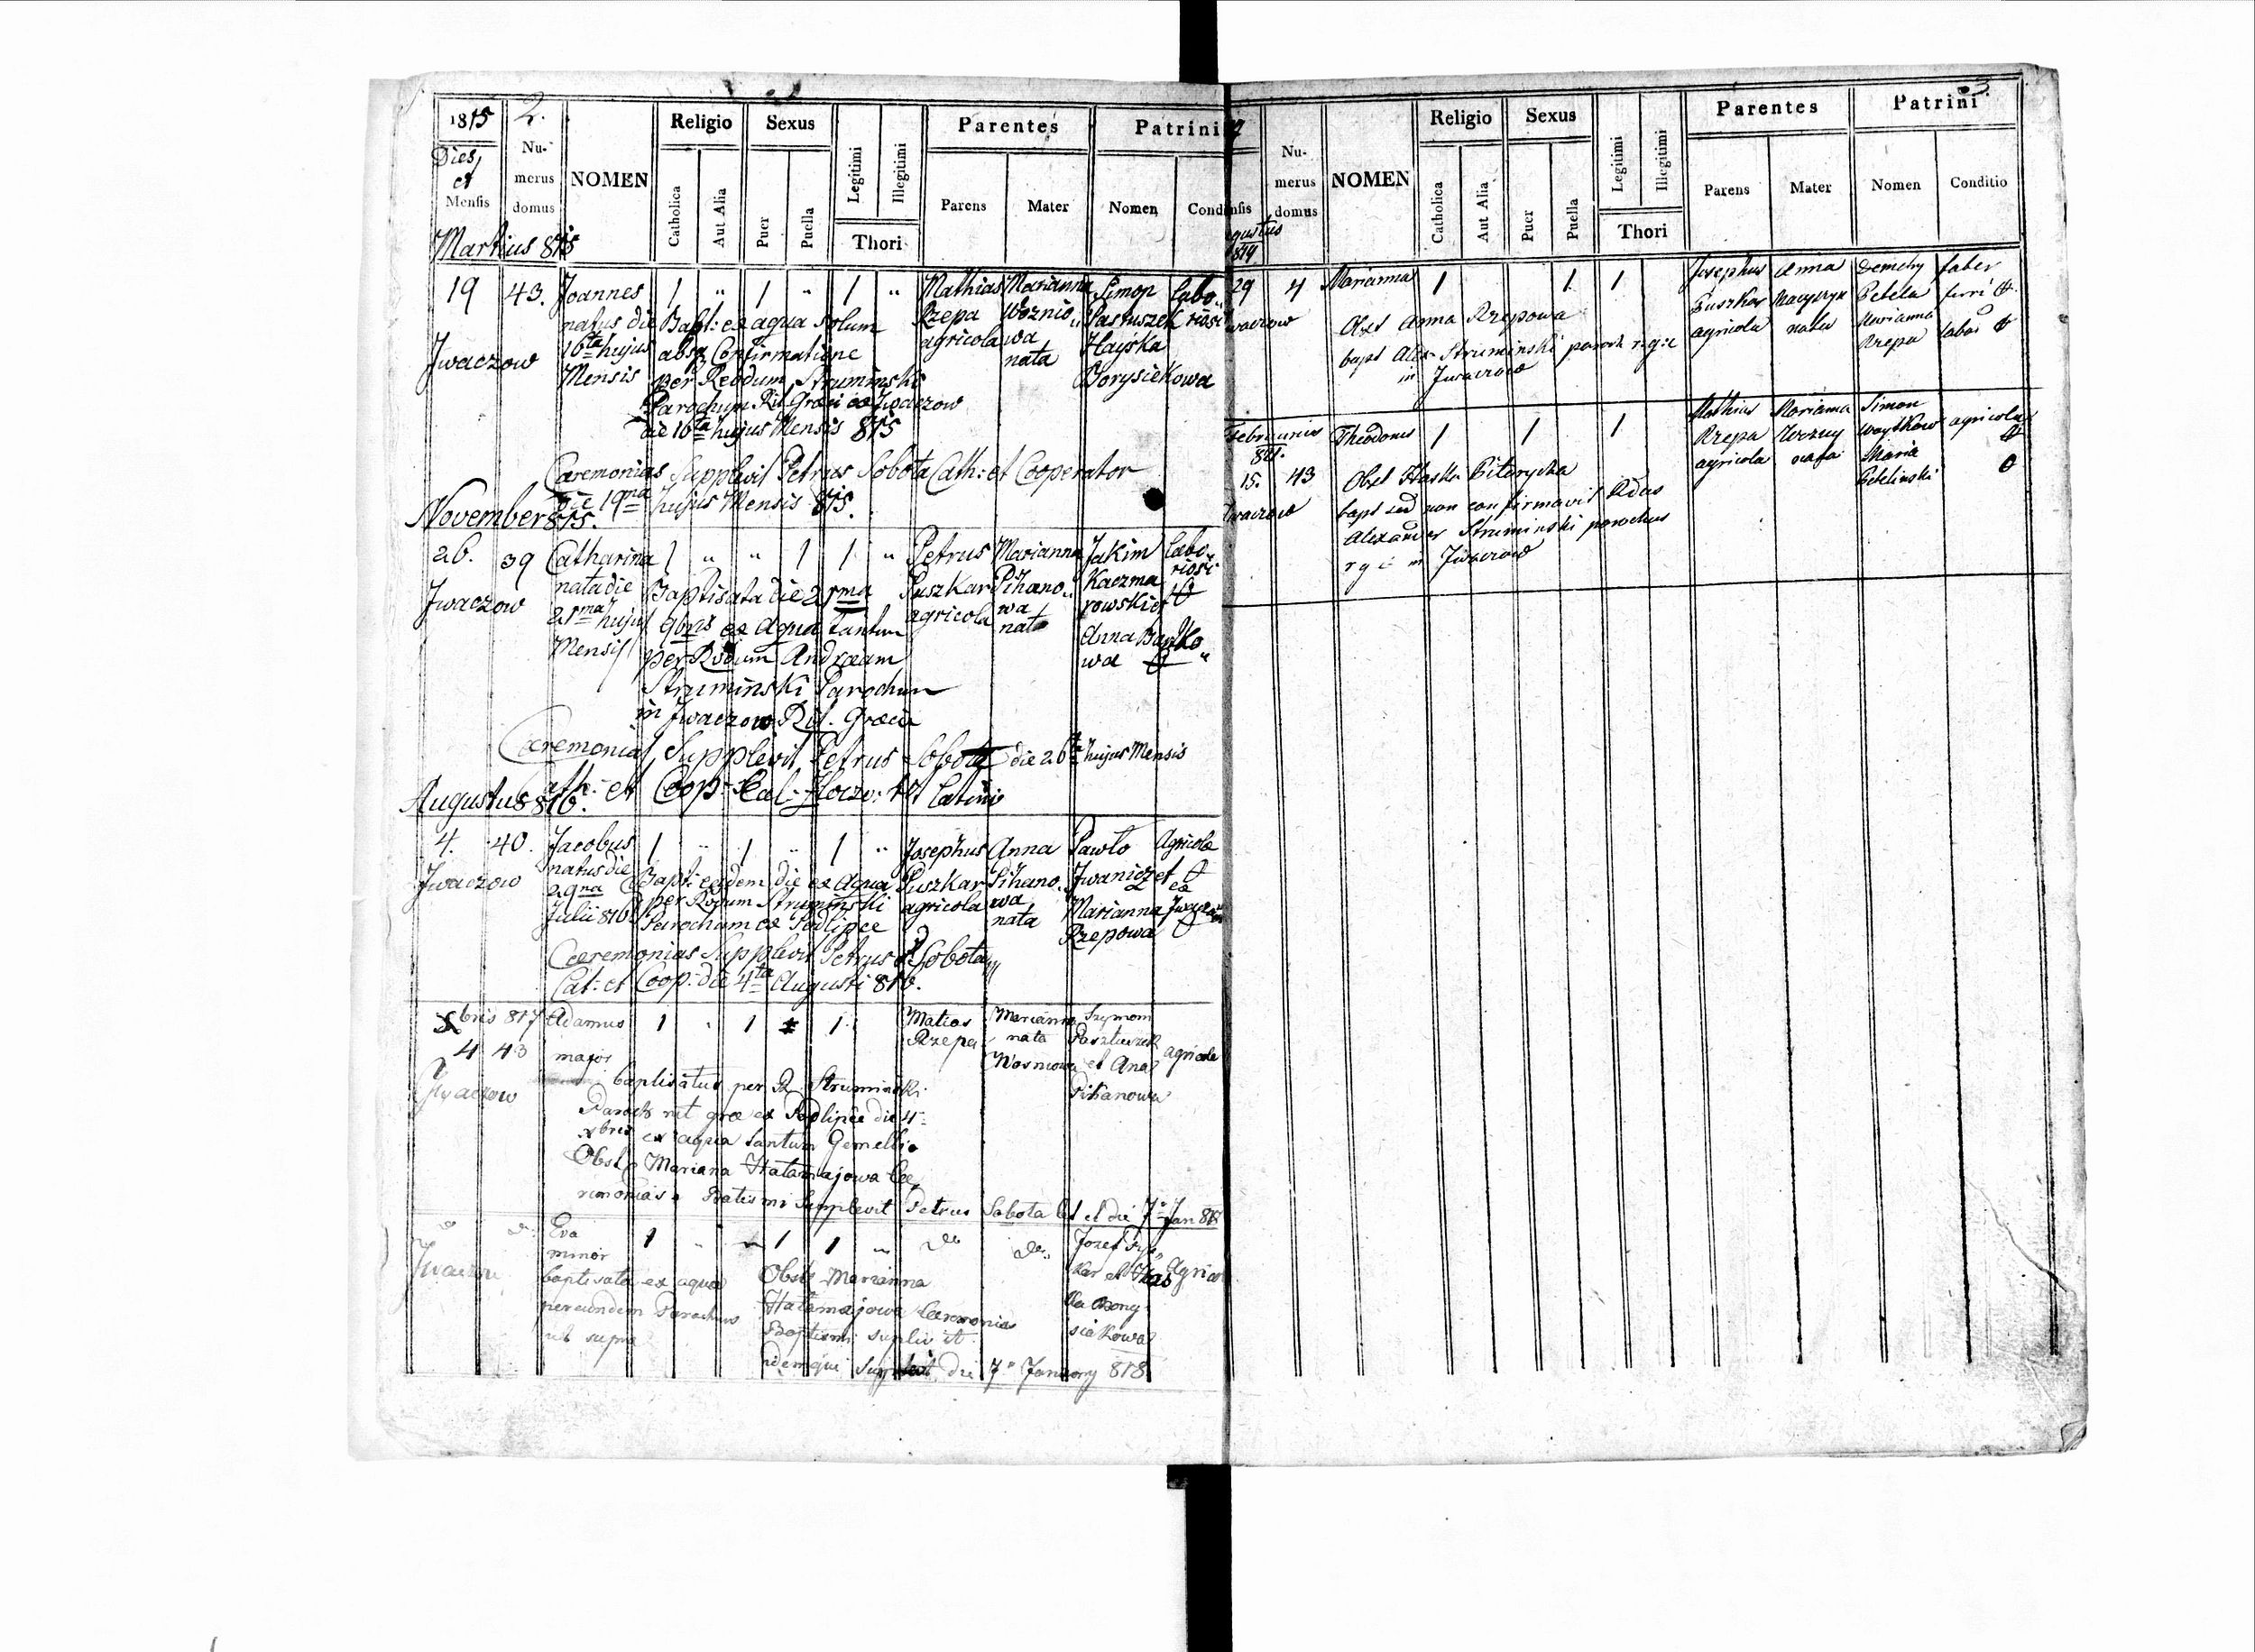 1815
2.
Dies
et
Mensis
Nu-
merus
domus
NOMEN
Religio
Catholica
Aut Alia
Sexus
Puer
Puella
Legitimi
Illegitimi
Thori
Parentes
Parens
Mater
Patrini
Nomen
Martius 815
19 43. Joannes 1 " 1 " 1 " Mathias Marianna Simon labo"
natus die Bapt: ex aqua solum Rzepa Woznio" Pastuszek riosi
Jwaczow 16ta hujus absq Confirmatione agricola wa Hayska
Mensis per Rdodum Struminski nata Borysiekowa
Parochum Rit. Graeci ex Jwaczow
die 16ta hujus Mensis 815
Caeremonias Supplevit Petrus Sobota Cath: et Cooperator
die 19na hujus Mensis 815.
November 815.
26. 39 Catharina 1 " " 1 1 " Petrus Marianna Jakim labo"
nata die Baptisata die 21ma Puszkar Pihano" Kaczma riosi
Jwaczow 21ma hujus 9bris ex aqua tantum agricola wa rowski et
Mensis per Rdum Andraeam nata Anna Bartko"
Struminski Parochum wa
in Jwaczow Rit. Graeci
Caeremonias Supplevit Petrus Sobota die 26ta hujus Mensis
Cath: et Coop: Rit Latini
Augustus 816.
4. 40. Jacobus 1 " 1 " 1 " Josephus Anna Pawlo Agricola
natus die Bapt: eadem die ex aqua Puszkar Pihano" Jwanicz et
Jwaczow 29na per Rdum Struminski agricola wa Marianna ex Jwaczow
Julii 816 Parochum ex Podlipce nata Rzepowa
Caeremonias Supplevit Petrus Sobota
Cat: et Coop: die 4ta Augusti 816.
Xbris 817 Adamus 1 " 1 1 Matias Marianna Szymon
4 43 major Rzepa nata Pasztuszek agricola
Jwaczow baptisatus per R. Struminski Wosniowa et Ana
Paroch rit grae ex Podlipce die 4 Pihanowa
xbris ex aqua tantum Gemelli
Obst. Mariana Hatamajowa Cae,
remonias Batismi Supplevit Petrus Sobota die 7 Jan 818
do do Eva 1 " " 1 1 " do do Jozef Pus,
Jwaczow minor kar et Has Agricol
baptisata ex aqua Obst. Marianna ka Bory
per eundem Parochum Hatamajowa Caeremonias siakowa
ut supra Baptismi suplevit
idemqui suplevit die 7o January 818
3
Nu-
merus
domus
NOMEN
Religio
Catholica
Aut Alia
Sexus
Puer
Puella
Legitimi
Illegitimi
Thori
Parentes
Parens
Mater
Patrini
Nomen
Conditio
29 4 Marianna 1 1 1 Josephus Anna Demchy faber
Puszkar nata Petela ferri
Obst Anna Rzepowa agricola Marianna
bapt Alex Struminski paroch r.g.c Rzepa labor
in Jwaczow
Februarius
821.
15. 43 Theodorus 1 1 1 Mathias Marianna Simon agricola
Rzepa Woytkow
Obst Haska agricola nata Maria
bapt sed non confirmavit Rdus Petelinski
Alexander Struminski parochus
r g c in Jwaczow